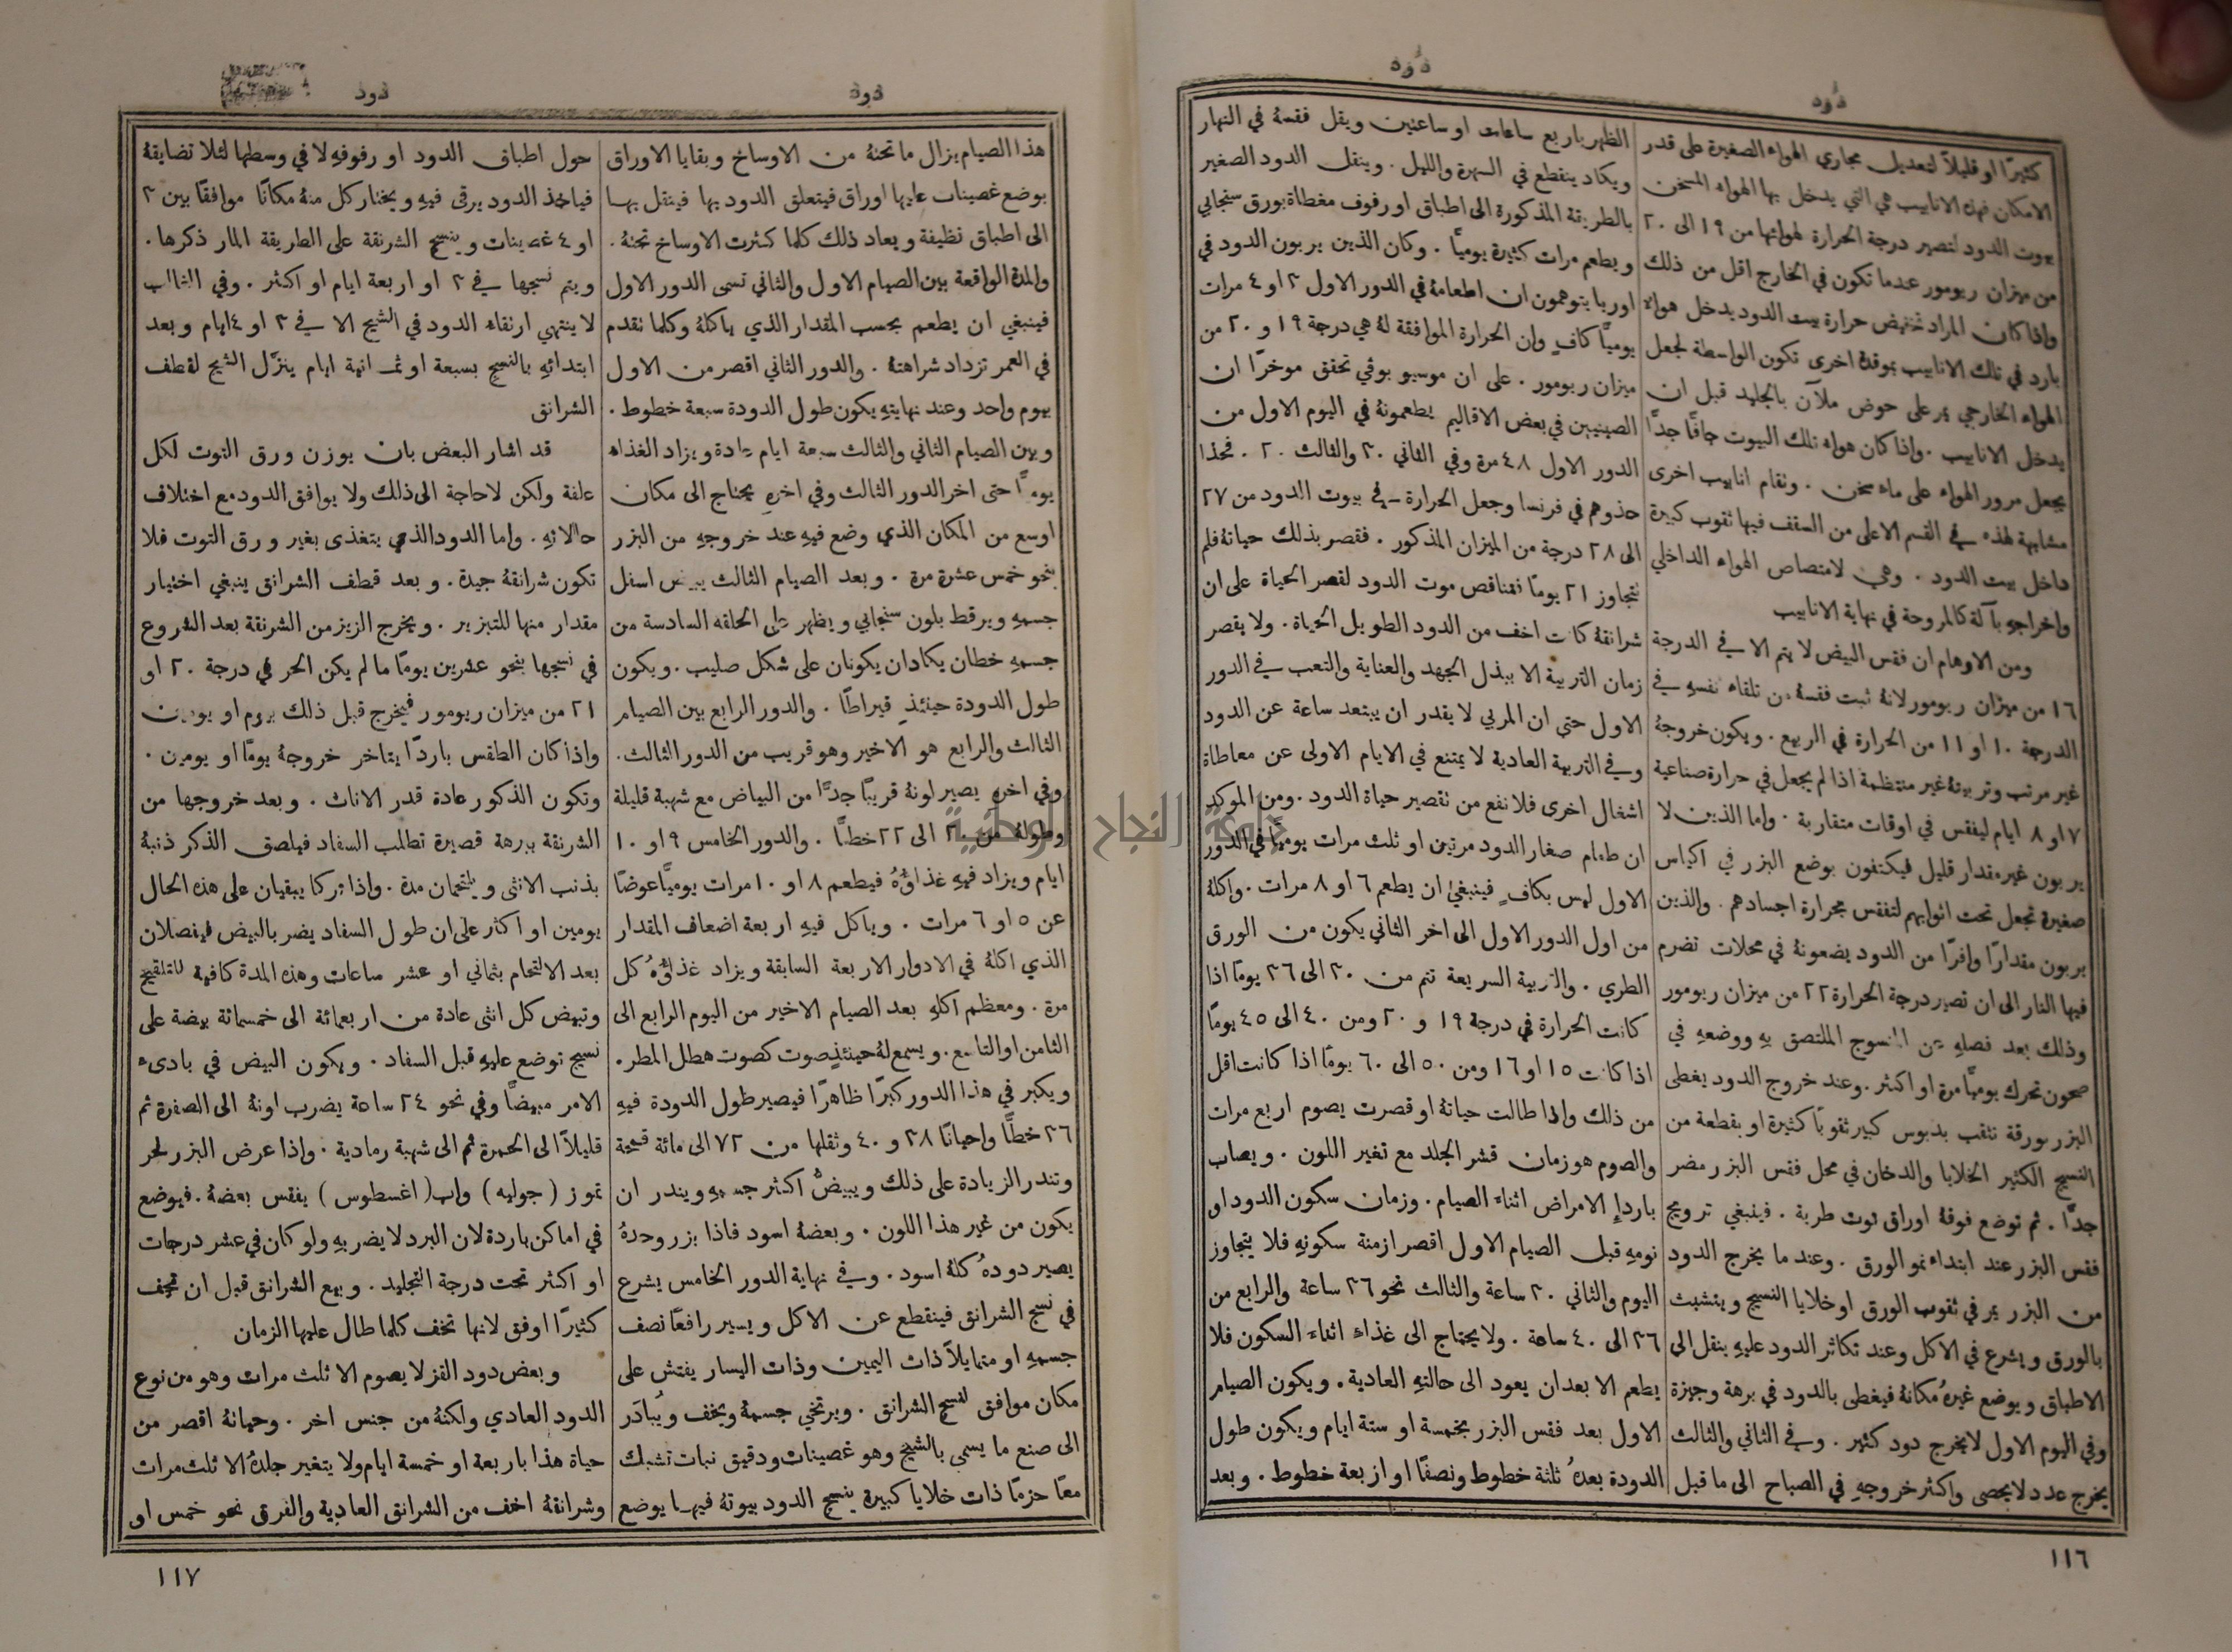 دُود
دُود
كثيرًا او قليلاً لتعديل مجاري الهواء الصغيرة على قدر
الامكان فهذه الانابيب هي التي يدخل بها الهواء المسخن
بيوت الدود لتصير درجة الحرارة لهوائها من ١٩ الى ٢٠
من ميزان ريومور عندما تكون في الخارج اقل من ذلك
واذا كان المراد تخفيض حرارة بيت الدود يدخل هواء
بارد في تلك الانابيب بموقدة اخرى تكون الواسطة لجعل
الهواء الخارجي يمر على حوض ملآن بالجليد قبل ان
يدخل الانابيب . واذا كان هواء تلك البيوت جافًا جدًّا
يجعل مرور الهواء على ماء سخن . وتقام انابيب اخرى
مشابهة لهذه في القسم الاعلى من السقف فيها ثقوب كبيرة
داخل بيت الدود . وهي لامتصاص الهواء الداخلي
واخراجهِ بآلة كالمروحة في نهاية الانابيب
ومن الاوهام ان فقس البيض لا يتم الا في الدرجة
١٦ من ميزان ريومور لانهُ ثبت فقسهُ من تلقاء نفسهِ في
الدرجة ١٠ او ١١ من الحرارة في الربيع . ويكون خروجهُ
غير مرتب وتربيتهُ غير منتظمة اذا لم يجعل في حرارة صناعية
٧ او ٨ ايام ليفقس في اوقات متقاربة . واما الذين لا
يربون غير مقدار قليل فيكتفون بوضع البزر في اكياس
صغيرة تجعل تحت اثوابهم لتفقس بحرارة اجسادهم . والذين
يربون مقدارًا وافرًا من الدود يضعونهُ في محلات تضرم
فيها النار الى ان تصير درجة الحرارة ٢٢ من ميزان ريومور
وذلك بعد فصلهِ عن المنسوج الملتصق بهِ ووضعهِ في
صحون تحرك يوميًّا مرة او اكثر . وعند خروج الدود يغطى
البزر بورقة تثقب بدبوس كبير ثقوبًا كثيرة او بقطعة من
النسيج الكثير الخلايا والدخان في محل فقس البزر مضر
جدًّا . ثم توضع فوقهُ اوراق توت طرية . فينبغي ترويج
فقس البزر عند ابتداء نمو الورق . وعند ما يخرج الدود
من البزر يمر في ثقوب الورق او خلايا النسيج ويتشبث
بالورق ويشرع في الاكل وعند تكاثر الدود عليهِ ينقل الى
الاطباق ويوضع غيرهُ مكانهُ فيغطى بالدود في برهة وجيزة
وفي اليوم الاول لا يخرج دود كثير . وفي الثاني والثالث
يخرج عدد لا يحصى واكثر خروجهِ في الصباح الى ما قبل
الظهر باربع ساعات او ساعتين ويقل فقسهُ في النهار
ويكاد ينقطع في السهرة والليل . وينقل الدود الصغير
بالطريقة المذكورة الى اطباق او رفوف مغطاة بورق سنجابي
ويطعم مرات كثيرة يوميًّا . وكان الذين يربون الدود في
اوربا يتوهمون ان اطعامهُ في الدور الاول ٣ او ٤ مرات
يوميًّا كافٍ وان الحرارة الموافقة لهُ هي درجة ١٩ و ٢٠ من
ميزان ريومور . على ان موسيو بوڤي تحقق موخرًا ان
الصينيين في بعض الاقاليم يطعمونهُ في اليوم الاول من
الدور الاول ٤٨ مرة وفي الثاني ٣٠ والثالث ٢٠ . فحذا
حذوهم في فرنسا وجعل الحرارة في بيوت الدود من ٢٧
الى ٢٨ درجة من الميزان المذكور . فقصر بذلك حياتهُ فلم
تتجاوز ٢١ يومًا فتناقص موت الدود لقصر الحياة على ان
شرانقهُ كانت اخف من الدود الطويل الحياة . ولا يقصر
زمان التربية الا ببذل الجهد والعناية والتعب في الدور
الاول حتى ان المربي لا يقدر ان يبتعد ساعة عن الدود
وفي التربية العادية لا يمتنع في الايام الاولى عن معاطاة
اشغال اخرى فلا نفع من تقصير حياة الدود . ومن الموكد
ان طعام صغار الدود مرتين او ثلث مرات يوميًّا في الدور
الاول ليس بكافٍ فينبغي ان يطعم ٦ او ٨ مرات . واكلهُ
من اول الدور الاول الى اخر الثاني يكون من الورق
الطري . والتربية السريعة تتم من ٢٠ الى ٢٦ يومًا اذا
كانت الحرارة في درجة ١٩ و ٢٠ ومن ٤٠ الى ٤٥ يومًا
اذا كانت ١٥ او ١٦ ومن ٥٠ الى ٦٠ يومًا اذا كانت اقل
من ذلك واذا طالت حياتهُ او قصرت يصوم اربع مرات
والصوم هو زمان قشر الجلد مع تغير اللون . ويصاب
باردإ الامراض اثناء الصيام . وزمان سكون الدود او
نومهِ قبل الصيام الاول اقصر ازمنة سكونهِ فلا يتجاوز
اليوم والثاني ٢٠ ساعة والثالث نحو ٢٦ ساعة والرابع من
٣٦ الى ٤٠ ساعة . ولا يحتاج الى غذاء اثناء السكون فلا
يطعم الا بعد ان يعود الى حالتهِ العادية . ويكون الصيام
الاول بعد فقس البزر بخمسة او ستة ايام ويكون طول
الدودة بعدهُ ثلثة خطوط ونصفًا او اربعة خطوط . وبعد
١١٦
دود
دود
هذا الصيام يزال ما تحتهُ من الاوساخ وبقايا الاوراق
بوضع غصينات عليها اوراق فيتعلق الدود بها فينقل بها
الى اطباق نظيفة ويعاد ذلك كلما كثرت الاوساخ تحتهُ .
والمدة الواقعة بين الصيام الاول والثاني تسمى الدور الاول
فينبغي ان يطعم بحسب المقدار الذي ياكلهُ وكلما تقدم
في العمر تزداد شراهتهُ . والدور الثاني اقصر من الاول
بيوم واحد وعند نهايتهِ يكون طول الدودة سبعة خطوط .
وبين الصيام الثاني والثالث سبعة ايام عادة ويزاد الغذاء
يوميًّا حتى اخر الدور الثالث وفي اخرهِ يحتاج الى مكان
اوسع من المكان الذي وضع فيهِ عند خروجهِ من البزر
بنحو خمس عشرة مرة . وبعد الصيام الثالث يبيض اسفل
جسمهِ ويرقط بلون سنجابي ويظهر على الحلقة السادسة من
جسمهِ خطان يكادان يكونان على شكل صليب . ويكون
طول الدودة حينئذٍ قيراطًا . والدور الرابع بين الصيام
الثالث والرابع هو الاخير وهو قريب من الدور الثالث .
وفي اخرهِ يصير لونهُ قريبًا جدًّا من البياض مع شهبة قليلة
وطولهُ من ٢٠ الى ٢٢ خطًّا . والدور الخامس ٩ او ١٠
ايام ويزاد فيهِ غذاؤهُ فيطعم ٨ او ١٠ مرات يوميًّا عوضًا
عن ٥ او ٦ مرات . وياكل فيهِ اربعة اضعاف المقدار
الذي اكلهُ في الادوار الاربعة السابقة ويزاد غذاؤهُ كل
مرة . ومعظم اكلهِ بعد الصيام الاخير من اليوم الرابع الى
الثامن او التاسع . ويسمع لهُ حينئذٍ صوت كصوت هطل المطر .
ويكبر في هذا الدور كبرًا ظاهرًا فيصير طول الدودة فيهِ
٣٦ خطًّا واحيانًا ٣٨ و ٤٠ وثقلها من ٧٢ الى مائة قمحة
وتندر الزيادة على ذلك ويبيضّ اكثر جسمهِ ويندر ان
يكون من غير هذا اللون . وبعضهُ اسود فاذا بزر وحدهُ
يصير دودهُ كلهُ اسود . وفي نهاية الدور الخامس يشرع
في نسج الشرانق فينقطع عن الاكل ويسير رافعًا نصف
جسمهِ او متمايلاً ذات اليمين وذات اليسار يفتش على
مكان موافق لنسج الشرانق . ويرتخي جسمهُ ويخف ويُبادَر
الى صنع ما يسمى بالشيح وهو غصينات ودقيق نبات تشبك
معًا حزمًا ذات خلايا كبيرة ينسج الدود بيوتهُ فيها يوضع
حول اطباق الدود او رفوفهِ لا في وسطها لئلا تضايقهُ
فياخذ الدود يرقى فيهِ ويختار كل منهُ مكانًا موافقًا بين ٣
او ٤ غصينات وينسج الشرنقة على الطريقة المار ذكرها .
ويتم نسجها في ٣ او اربعة ايام او اكثر . وفي الغالب
لا ينتهي ارتقاء الدود في الشيح الا في ٣ او ٤ ايام وبعد
ابتدائهِ بالنسج بسبعة او ثمانية ايام ينزَّل الشيح لقطف
الشرانق
قد اشار البعض بان يوزن ورق التوت لكل
علفة ولكن لا حاجة الى ذلك ولا يوافق الدود مع اختلاف
حالاتهِ . واما الدود الذي يتغذى بغير ورق التوت فلا
تكون شرانقهُ جيدة . وبعد قطف الشرانق ينبغي اختيار
مقدار منها للتبزير . ويخرج الزيز من الشرنقة بعد الشروع
في نسجها بنحو عشرين يومًا ما لم يكن الحر في درجة ٢٠ او
٢١ من ميزان ريومور فيخرج قبل ذلك بيوم او يومين
واذا كان الطقس باردًا يتاخر خروجهُ يومًا او يومين .
وتكون الذكور عادة قدر الاناث . وبعد خروجها من
الشرنقة ببرهة قصيرة تطلب السفاد فيلصق الذكر ذنبهُ
بذنب الانثى ويلتحمان مدة . واذا تركا يبقيان على هذه الحال
يومين او اكثر على ان طول السفاد يضر بالبيض فيفصلان
بعد الالتحام بثماني او عشر ساعات وهذه المدة كافية للتلقيح
وتبيض كل انثى عادة من اربعمائة الى خمسمائة بيضة على
نسيج توضع عليهِ قبل السفاد . ويكون البيض في بادىء
الامر مبيضًّا وفي نحو ٢٤ ساعة يضرب لونهُ الى الصفرة ثم
قليلاً الى الحمرة ثم الى شهبة رمادية . واذا عرض البزر لحر
تموز (جوليه) واب (اغسطوس) يفقس بعضهُ . فيوضع
في اماكن باردة لان البرد لا يضر بهِ ولو كان في عشر درجات
او اكثر تحت درجة التجليد . وبيع الشرانق قبل ان تجف
كثيرًا اوفق لانها تخف كلما طال عليها الزمان
وبعض دود القز لا يصوم الا ثلث مرات وهو من نوع
الدود العادي ولكنهُ من جنس اخر . وحياتهُ اقصر من
حياة هذا باربعة او خمسة ايام ولا يتغير جلدهُ الا ثلث مرات
وشرانقهُ اخف من الشرانق العادية والفرق نحو خمس او
١١٧
جامعة النجاح الوطنية